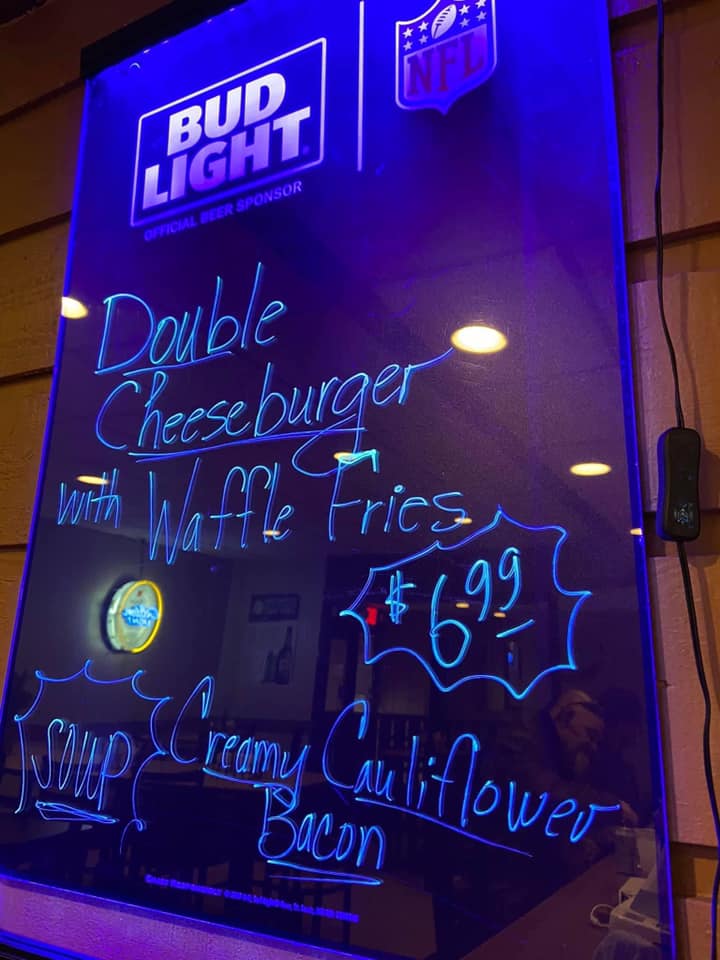 BUD
LIGHT
OFFICIAL BEER SPONSOR
NFL
Double
Cheeseburger
with Waffle Fries
$6.99
SOUP
Creamy Cauliflower
Bacon